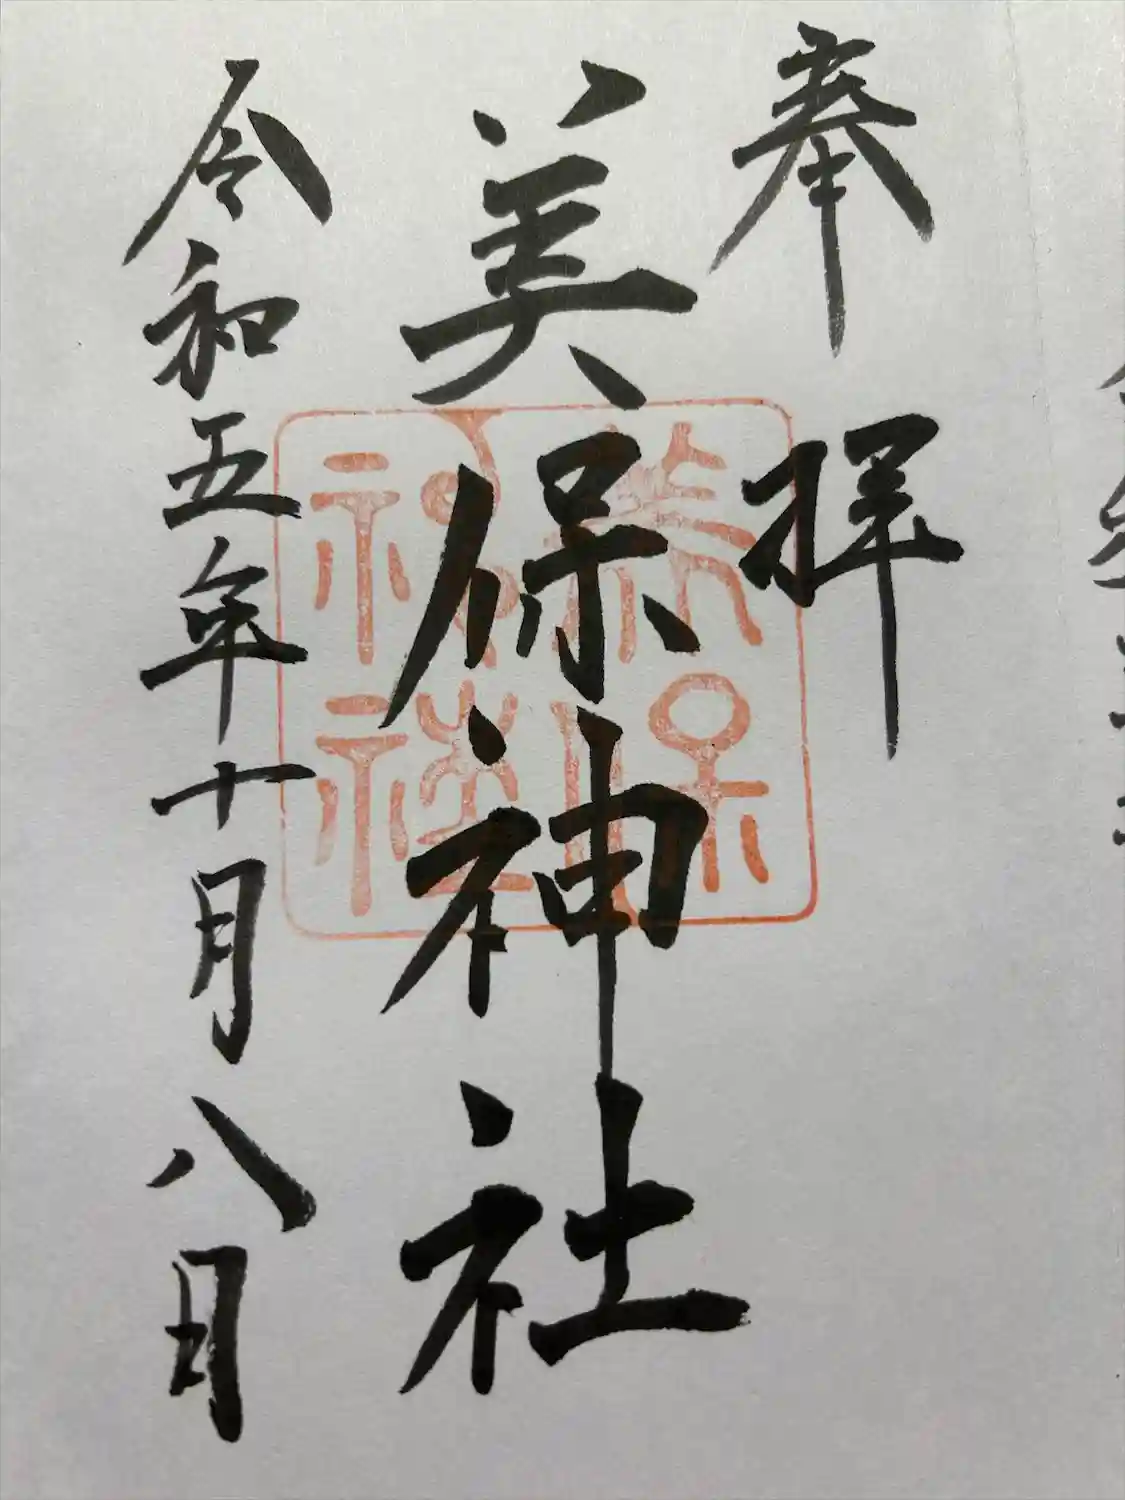 奉拝
美保神社
美保神社
令和五年十月八日